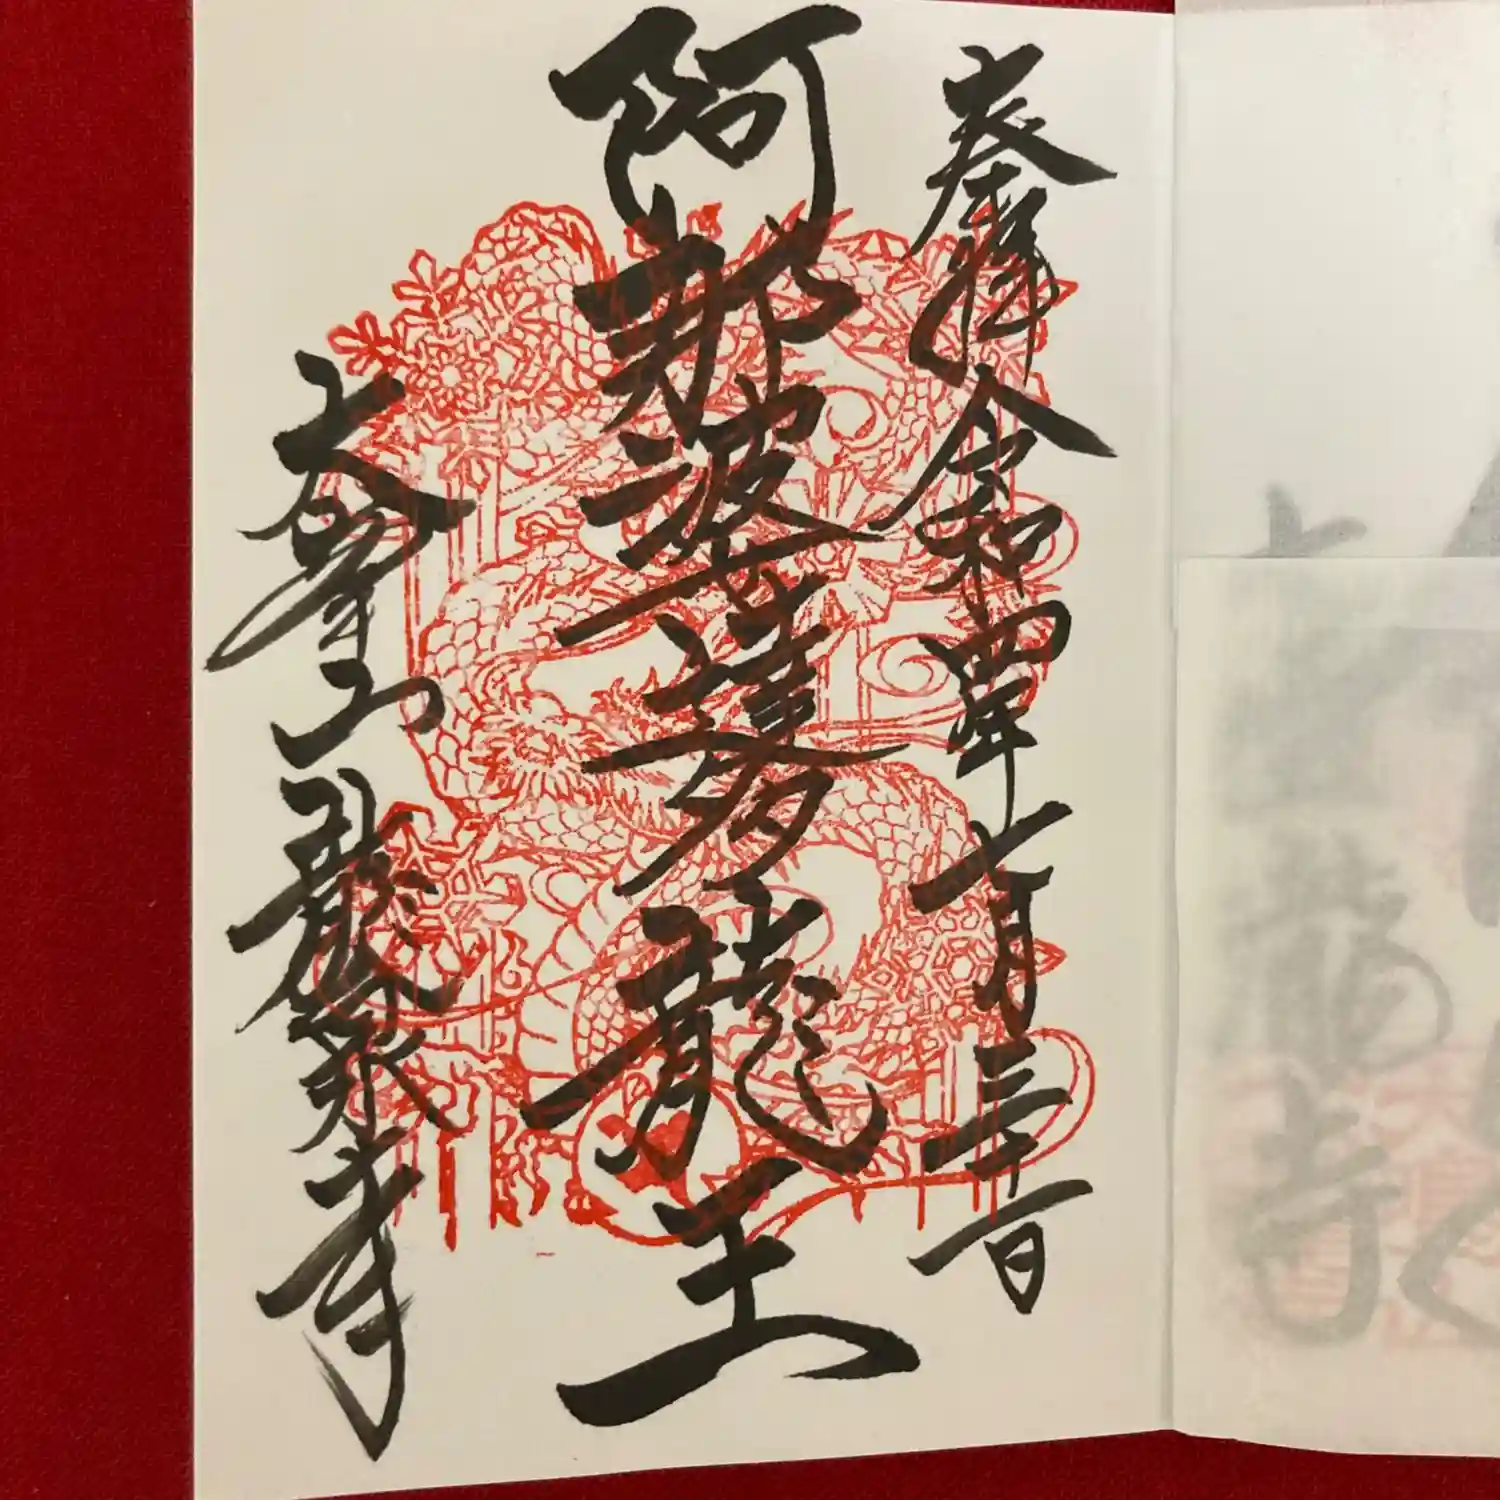 奉拝 令和四年七月三十一日
阿那婆達多龍王
大峯山龍泉寺